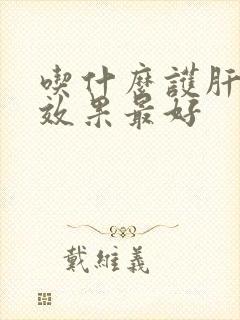 喫什麼護肝
效果最好
戴維義